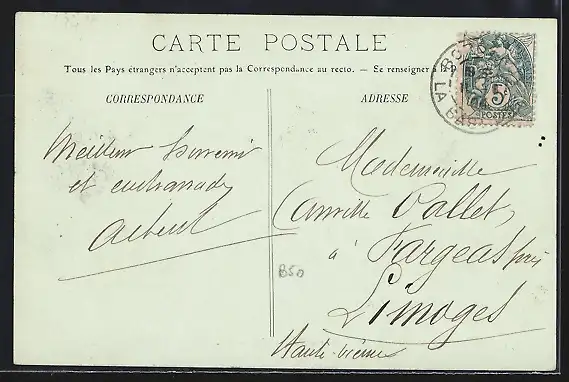 CARTE POSTALE
Tous les Pays étrangers n'acceptent pas la Correspondance au recto. — Se renseigner à la P
CORRESPONDANCE
ADRESSE
5c
POSTES
LA BA
Meilleur souvenir
et embrassades
Mademoiselle
Camille Pallet,
à Fargeas près
Limoges
Haute-vienne
B50